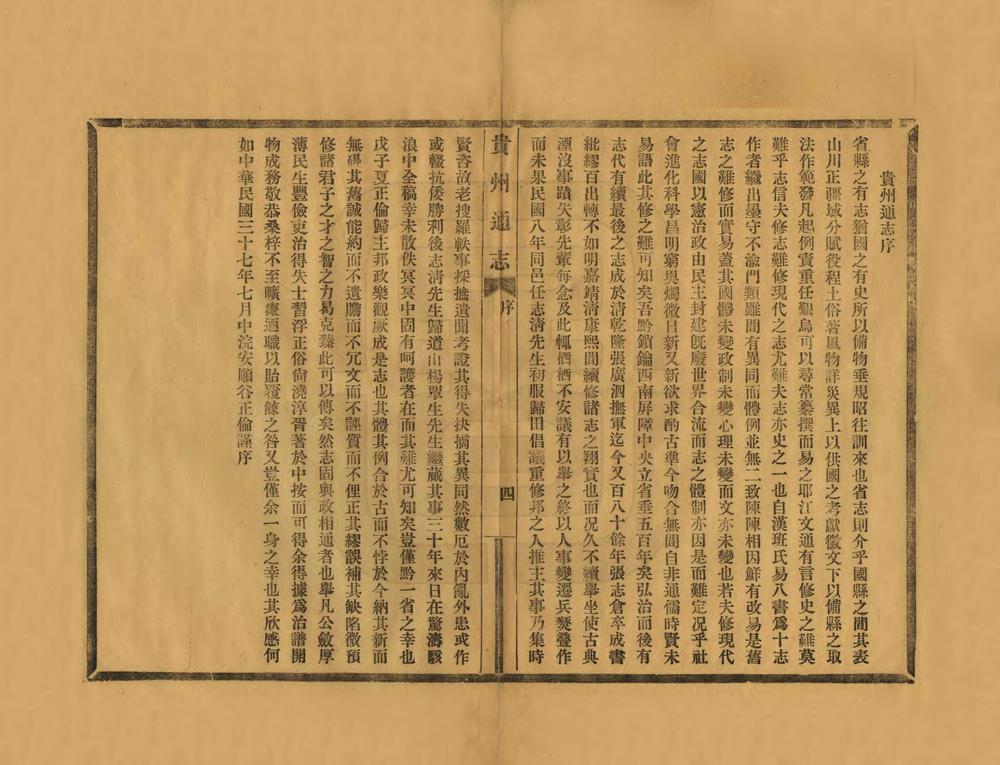 貴州通志序
省縣之有志猶國之有史所以備物垂規昭往訓來也省志則介乎國縣之間其表
山川正疆域分賦役程土俗著風物詳災異上以供國之考獻徵文下以備縣之取
法作範發凡起例責重任艱烏可以尋常纂撰而易之耶江文通有言修史之難莫
難乎志信夫修志難修現代之志尤難夫志亦史之一也自漢班氏易八書爲十志
作者繼出墨守不渝門類雖間有異同而體例並無二致陳陳相因鮮有改易是舊
志之難修而實易蓋其國體未變政制未變心理未變而文亦未變也若夫修現代
之志國以憲治政由民主封建旣廢世界合流而志之體制亦因是而難定况乎社
會進化科學昌明窮奥燭微日新又新欲求酌古準今吻合無間自非通儒時賢未
易語此其修之難可知矣吾黔鎖鑰西南屏障中央立省垂五百年矣弘治而後有
志代有續最後之志成於淸乾隆張廣泗撫軍迄今又百八十餘年張志倉卒成書
紕繆百出轉不如明嘉靖淸康熙間續修諸志之翔實也而况久不續舉坐使古典
湮沒事蹟失彰先輩每念及此輒栖栖不安議有以舉之終以人事變遷兵燹疊作
而未果民國八年同邑任志淸先生初服歸田倡議重修邦之人推主其事乃集時
貴州通志 序 四
賢咨故老搜羅軼事採摭遺聞考證其得失抉摘其異同然數厄於內亂外患或作
或輟抗倭勝利後志淸先生歸道山楊覃生先生繼蕆其事三十年來日在驚濤駭
浪中全稿幸未散佚冥冥中固有呵護者在而其難尤可知矣豈僅黔一省之幸也
戊子夏正倫歸主邦政樂觀厥成是志也其體其例合於古而不悖於今納其新而
無碍其舊誠能約而不遺贍而不冗文而不誣質而不俚正其繆誤補其缺陷微預
修諸君子之才之智之力曷克臻此可以傳矣然志固與政相通者也舉凡公斂厚
薄民生豐儉吏治得失士習浮正俗尙澆淳胥著於中按而可得余得據爲治譜開
物成務敬恭桑梓不至曠瘝逋職以貽覆餗之咎又豈僅余一身之幸也其欣感何
如中華民國三十七年七月中浣安順谷正倫謹序